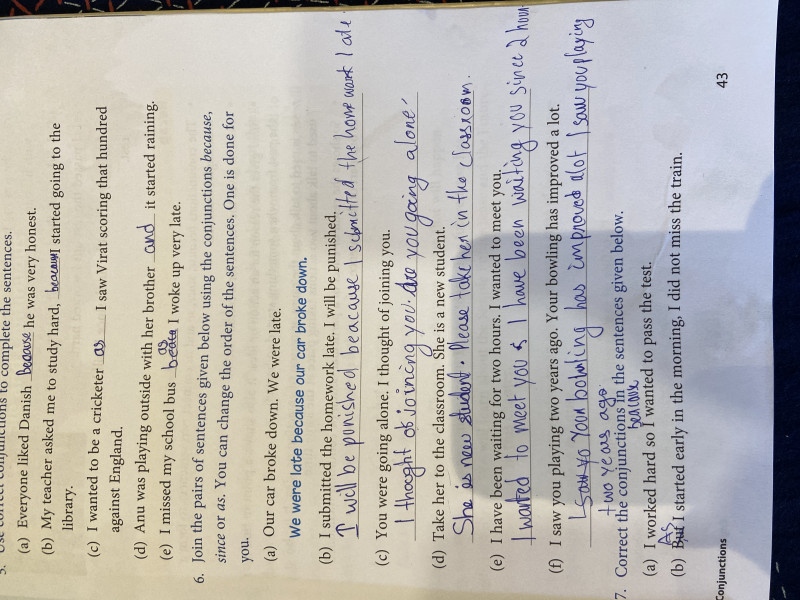 5. Use correct conjunctions to complete the sentences.
(a) Everyone liked Danish because he was very honest.
(b) My teacher asked me to study hard, because I started going to the
library.
(c) I wanted to be a cricketer as I saw Virat scoring that hundred
against England.
(d) Anu was playing outside with her brother and it started raining.
(e) I missed my school bus as I woke up very late.
6. Join the pairs of sentences given below using the conjunctions because,
since or as. You can change the order of the sentences. One is done for
you.
(a) Our car broke down. We were late.
We were late because our car broke down.
(b) I submitted the homework late. I will be punished.
I will be punished beacause I submitted the home work late
(c) You were going alone. I thought of joining you.
I thought of joining you. Are you going alone
(d) Take her to the classroom. She is a new student.
She is new student. Please take her in the classroom.
(e) I have been waiting for two hours. I wanted to meet you.
I wanted to meet you & I have been waiting you since 2 hour
(f) I saw you playing two years ago. Your bowling has improved a lot.
I saw yo Your bowling has improved alot I saw you playing
two years ago.
7. Correct the conjunctions in the sentences given below.
because
(a) I worked hard so I wanted to pass the test.
As
(b) But I started early in the morning, I did not miss the train.
Conjunctions
43